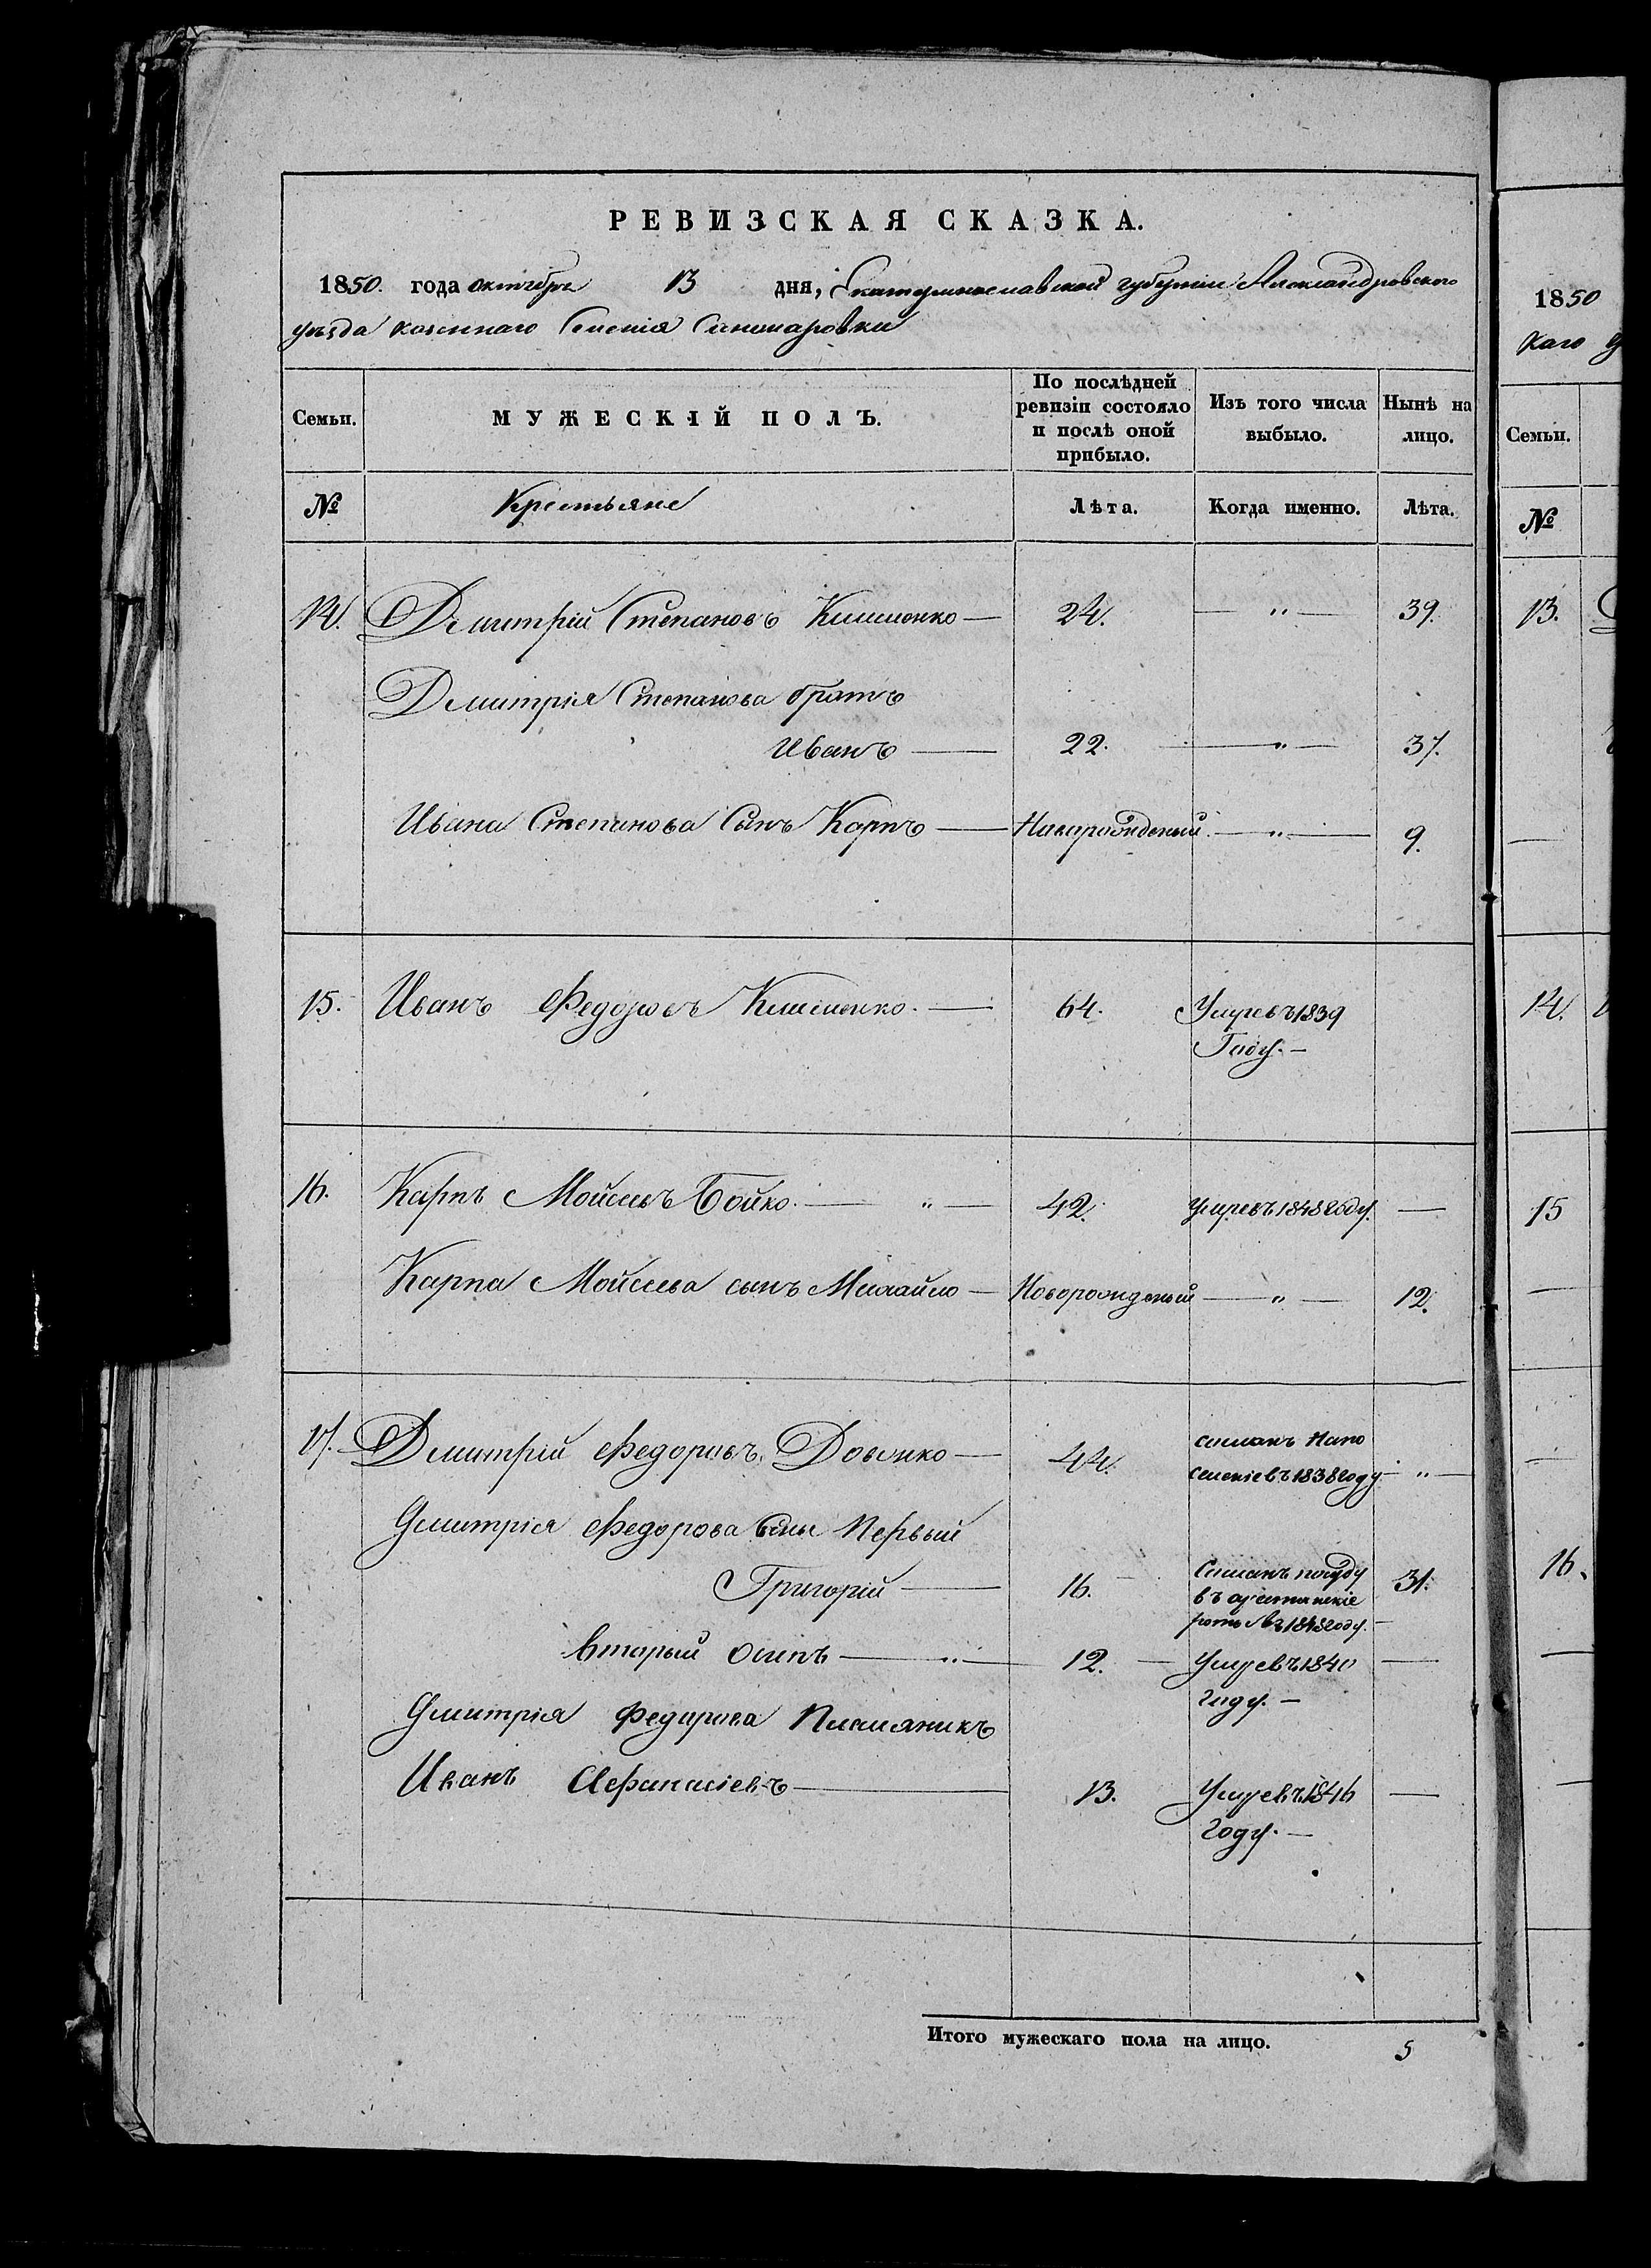 РЕВИЗСКАЯ СКАЗКА.
1850. года октября 13 дня, Екатеринославской губерніи Александровского
уезда казеннаго Селенія Санжаровки
Семьи. МУЖЕСКІЙ ПОЛЪ. По послѣдней ревизіи состояло и послѣ оной прибыло. Изъ того числа выбыло. Нынѣ на лицо.
№ Крестьяне Лѣта. Когда именно. Лѣта.
14. Дмитрій Степановъ Клименко — 24. — „ — 39.
Дмитрія Степанова братъ
Иванъ — 22. — „ — 37.
Ивана Степанова Сынъ Карпъ — Новорожденый — „ — 9.
15. Иванъ Федоровъ Клименко. — 64. Умревъ 1839
Году. —
16. Карпъ Мойсеевъ Бойко. — „ — 42. Умревъ 1848 году. —
Карпа Мойсеева сынъ Михайло — Новорожденый — „ — 12.
17. Дмитрій Федоровъ Довенко — 44. сосланъ Напо
селеніе въ 1838 году — „ —
Дмитрія Федорова Сыны Первый
Григорій — 16. — Сосланъ посуду
въ арестанскіе
роты въ 1848 году. — 31.
Вторый Осипъ — „ — 12. — Умревъ 1840
году. — —
Дмитрія Федорова Племяникъ
Иванъ Афанасіевъ — 13. Умревъ 1846
Году. — —
Итого мужескаго пола на лицо. 5
1850
каго
Семьи.
№
13.
14.
15
16.